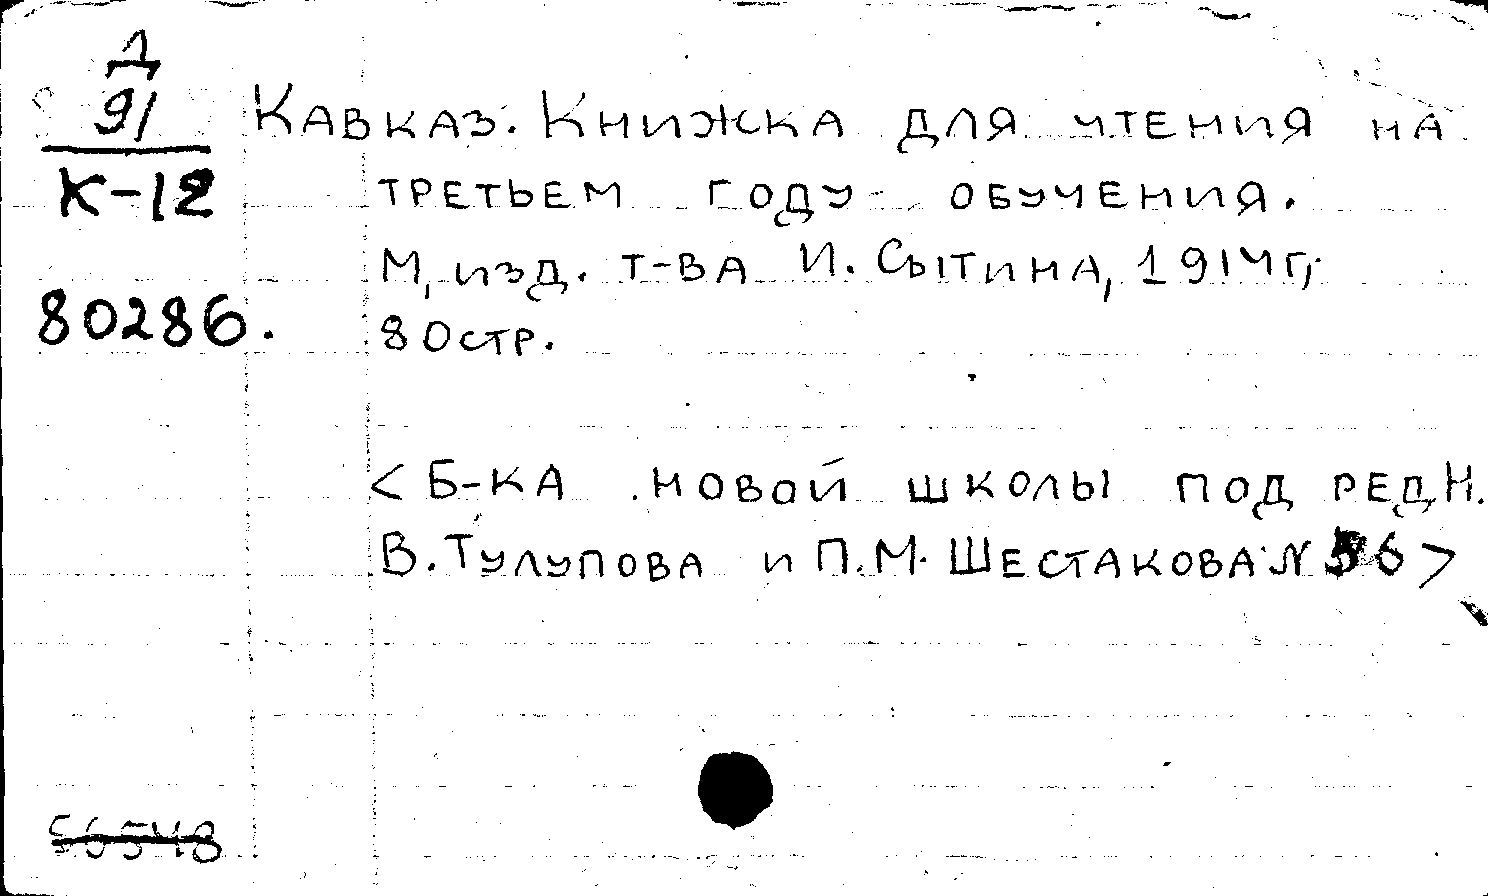 Д
91
К-12
80286.
Кавказ. Книжка для чтения на
третьем году обучения.
М, изд. т-ва И. Сытина, 1914 г,
80 стр.
<Б-ка новой школы под ред Н.
В. Тулупова и П.М. Шестакова N 56>
56548